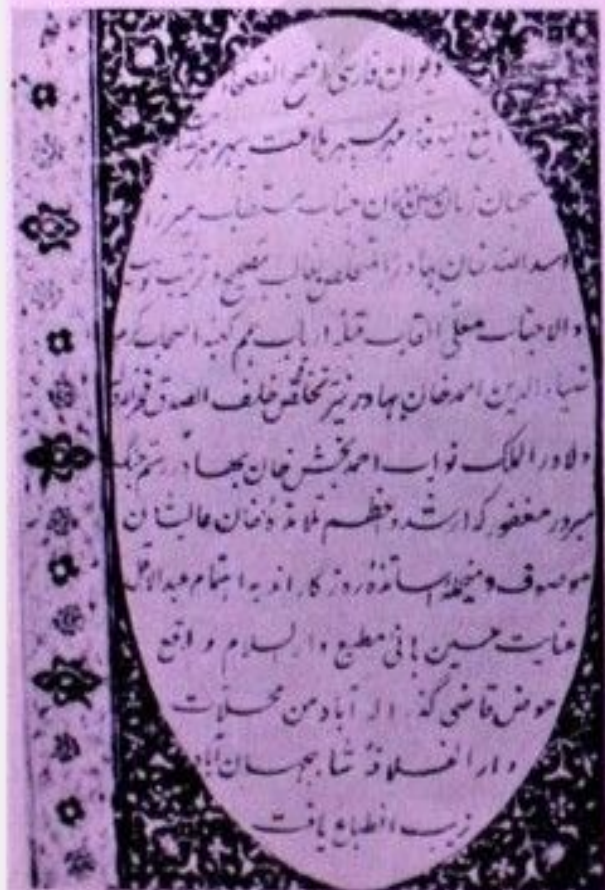 دیوان فارسی افصح الفصحا
ابلغ البلغا مهر سپهر بلاغت سپهر مهر
سحبان زمان جناب مستطاب میرزا
اسد الله خان بهادر متخلص بغالب بتصحیح و ترتیب
والا جناب معلی القاب قبله ارباب همم کعبه اصحاب کرم
ضیاء الدین احمد خان بهادر نیر تخلص خلف الصدق فخر الدوله
دلاور الملک نواب احمد بخش خان بهادر رستم جنگ
مبرور مغفور که ارشد و اعظم تلامذهٔ خان عالیشان
موصوف و اساتذهٔ روزگار اند به اهتمام عبد الاقل
عنایت حسین بانی مطبع دار السلام واقع
حوض قاضی من محلات
دار الخلافهٔ شاهجهان آباد
زیب انطباع یافت